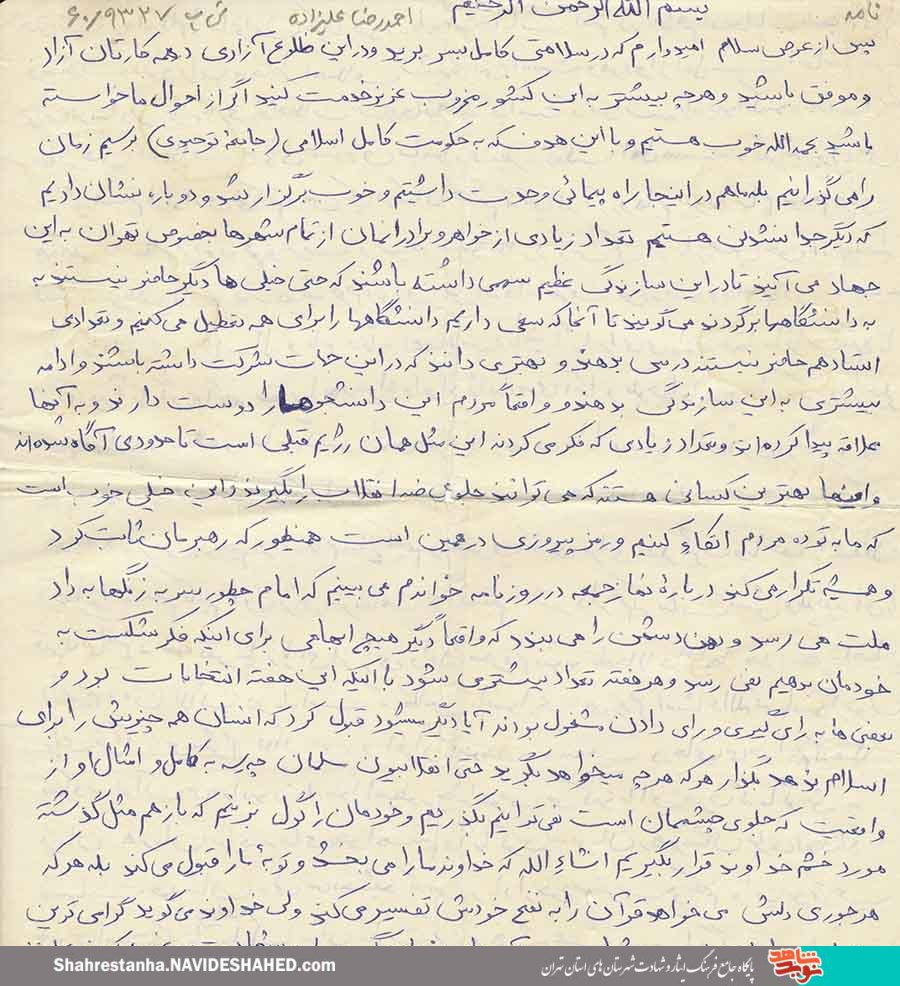 نامه
احمدرضا علیزاده
ش پ ۶۰/۹۳۲۷
بسم الله الرحمن الرحیم
پس از عرض سلام امیدوارم که در سلامتی کامل بسر برید و در این طلوع آزادی همه کارتان آزاد
و موفق باشید و هرچه بیشتر به این کشور مخروب عزیز خدمت کنید اگر از احوال ما خواسته
باشید بحمدالله خوب هستیم و با این هدف که به حکومت کامل اسلامی (جامعهٔ توحیدی) برسیم زمان
را می گذرانیم بله ما هم در اینجا راه پیمائی وحدت داشتیم و خوب برگزار شد و دوباره نشان دادیم
که دیگر جدا نشدنی هستیم تعداد زیادی از خواهر و برادرانمان از تمام شهرها بخصوص تهران به این
جهاد می آیند تا در این سازندگی عظیم سهمی داشته باشند که حتی خیلی ها دیگر حاضر نیستند به
به دانشگاهها برگردند می گویند تا آنجا که سعی داریم دانشگاهها را برای همه تعطیل می کنیم و تعدادی
استاد هم حاضر نیستند درس بدهند و بهتر می دانند که در این جهات شرکت داشته باشند و ادامه
بیشتری به این سازندگی بدهند و واقعاً مردم این دانشجوها را دوست دارند و به آنها
علاقه پیدا کرده اند و تعداد زیادی که فکر می کردند این مثل همان رژیم قبلی است تا حدودی آگاه شده اند
و اینها بهترین کسانی هستند که می توانند جلوی ضد انقلاب را بگیرند و این خیلی خوب است
که ما به توده مردم اتکاء کنیم و رمز پیروزی در همین است همینطور که رهبرمان ثابت کرد
و همیشه تکرار می کند درباره نماز جمعه در روزنامه خواندم می بینیم که امام چطور سر به زنگها به داد
ملت می رسد و دهن دشمن را می بندد که واقعاً دیگر هیچ ابهامی برای اینکه فکر شکست به
خودمان بدهیم نمی رسد و هر هفته تعداد بیشتر می شود با اینکه این هفته انتخابات بود و
بعضی ها به رای گیری و رای دادن مشغول بودند آیا دیگر میشود قبول کرد که انسان همه چیزش را برای
اسلام ندهد بگذار هر که هرچه میخواهد بگوید حتی انقلابیون سلمان چه رسد به کامل و امثال او از
واقعیت که جلوی چشممان است نمی توانیم بگذریم و خودمان را گول بزنیم که باز هم مثل گذشته
مورد خشم خداوند قرار بگیریم انشاء الله که خداوند ما را می بخشد و توبهٔ ما را قبول می کند بله هر که
هر جوری دلش می خواهد قرآن را به نفع خودش تفسیر می کند ولی خداوند می گوید گرامی ترین
Shahrestanha.NAVIDESHAHED.com
پایگاه جامع فرهنگ ایثار و شهادت شهرستان های استان تهران
نوید شاهد